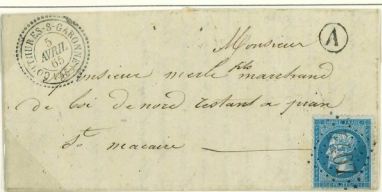 COUTHURES-S-GARONNE
5
AVRIL
65
A
Monsieur
monsieur merle fils marchand
de boi de nord restant a pian
St macaire